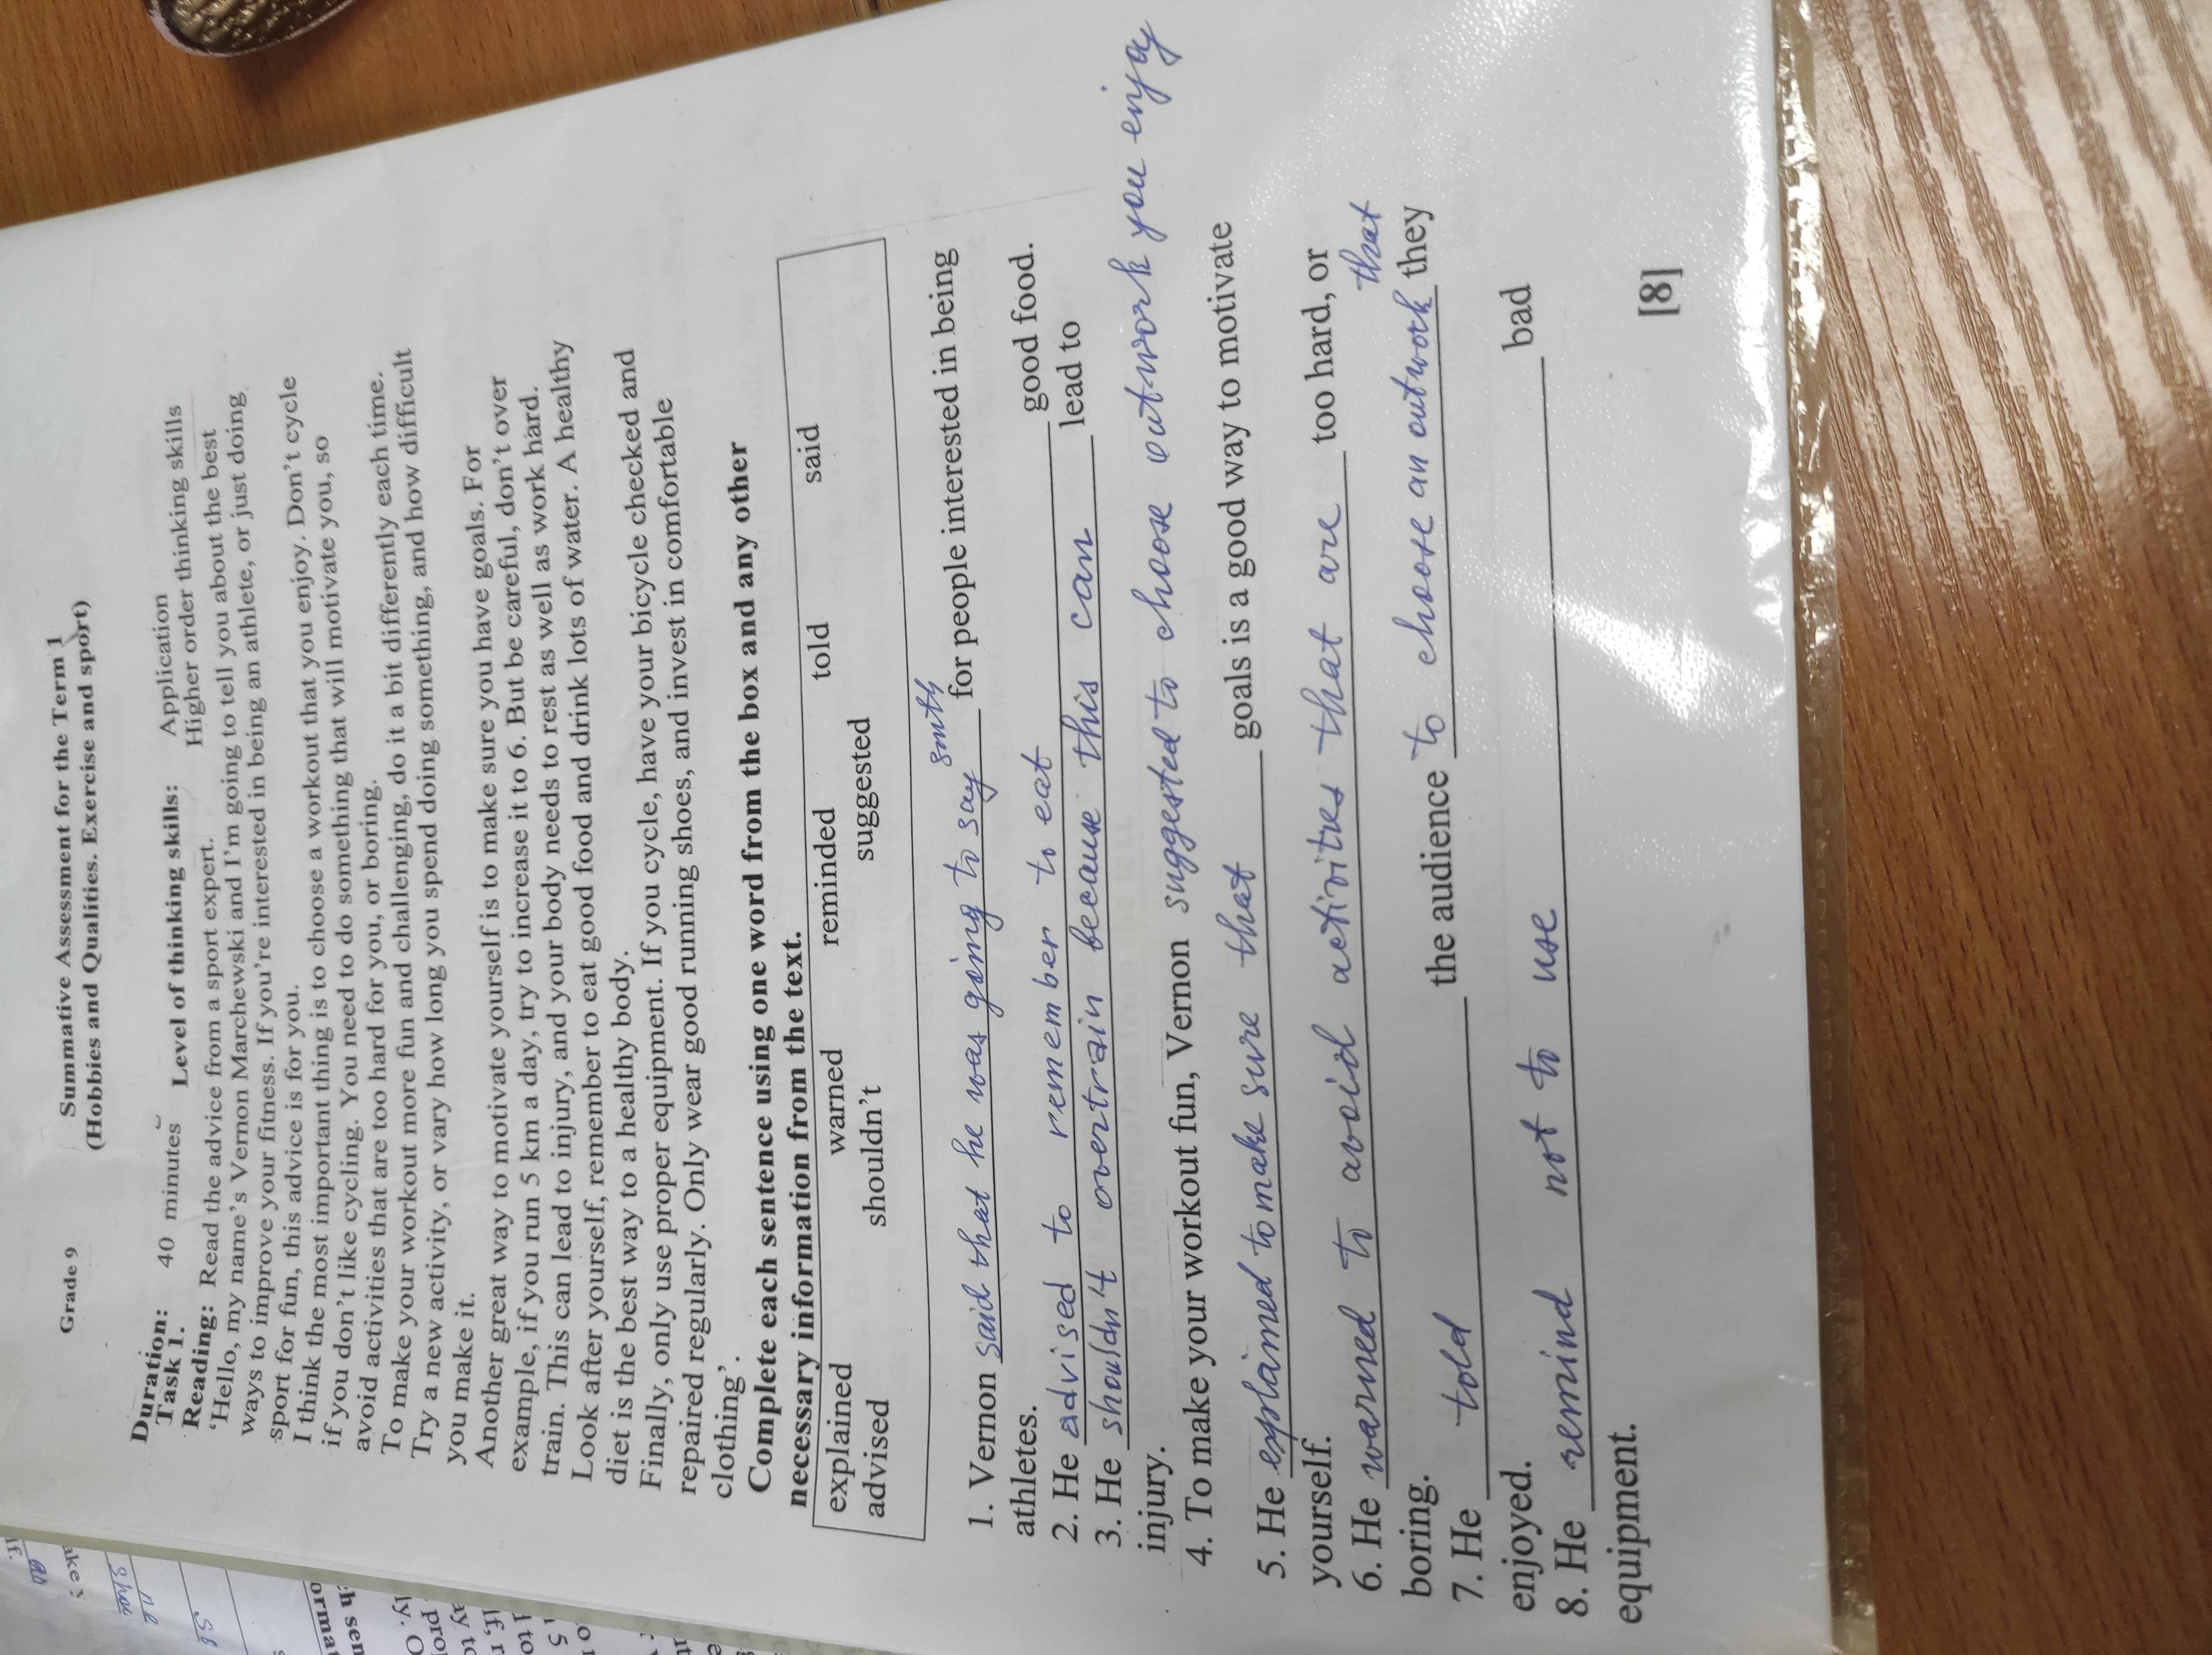 Grade 9
Summative Assessment for the Term 1
(Hobbies and Qualities. Exercise and sport)
Duration: 40 minutes Level of thinking skills: Application
Task 1. Higher order thinking skills
Reading: Read the advice from a sport expert.
‘Hello, my name’s Vernon Marchewski and I’m going to tell you about the best
ways to improve your fitness. If you’re interested in being an athlete, or just doing
sport for fun, this advice is for you.
I think the most important thing is to choose a workout that you enjoy. Don’t cycle
if you don’t like cycling. You need to do something that will motivate you, so
avoid activities that are too hard for you, or boring.
To make your workout more fun and challenging, do it a bit differently each time.
Try a new activity, or vary how long you spend doing something, and how difficult
you make it.
Another great way to motivate yourself is to make sure you have goals. For
example, if you run 5 km a day, try to increase it to 6. But be careful, don’t over
train. This can lead to injury, and your body needs to rest as well as work hard.
Look after yourself, remember to eat good food and drink lots of water. A healthy
diet is the best way to a healthy body.
Finally, only use proper equipment. If you cycle, have your bicycle checked and
repaired regularly. Only wear good running shoes, and invest in comfortable
clothing’.
Complete each sentence using one word from the box and any other
necessary information from the text.
explained warned reminded told said
advised shouldn’t suggested
1. Vernon said that he was going to say smth for people interested in being
athletes.
2. He advised to remember to eat good food.
3. He shouldn't overtrain because this can lead to
injury.
4. To make your workout fun, Vernon suggested to choose outwork you enjoy
5. He explained to make sure that goals is a good way to motivate
yourself.
6. He warned to avoid activities that are too hard, or
boring.
7. He told the audience to choose an outwork that they
enjoyed.
8. He remind not to use bad
equipment.
[8]